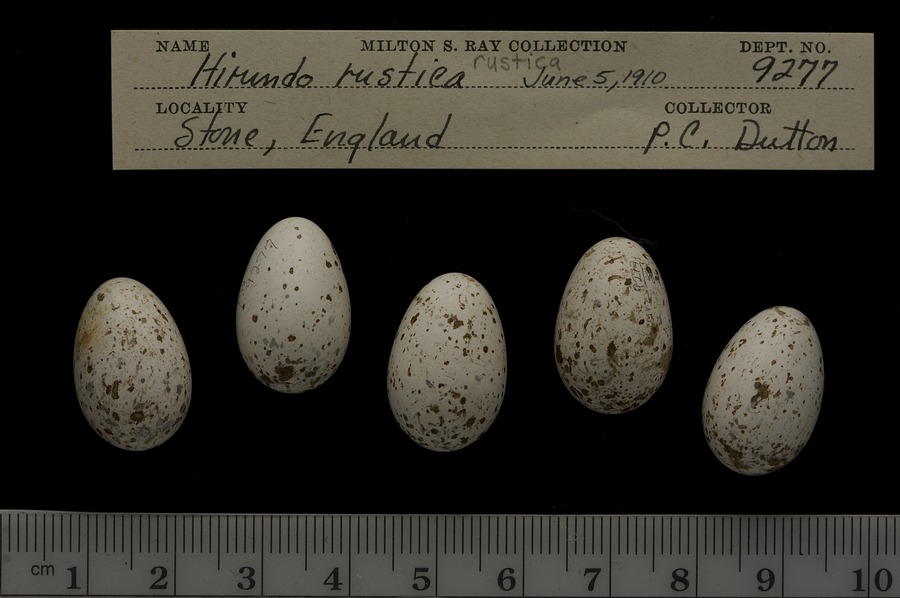 NAME MILTON S. RAY COLLECTION DEPT. NO.
Hirundo rustica rustica June 5, 1910 9277
LOCALITY COLLECTOR
Stone, England P.C. Dutton
9277
cm 1 2 3 4 5 6 7 8 9 10